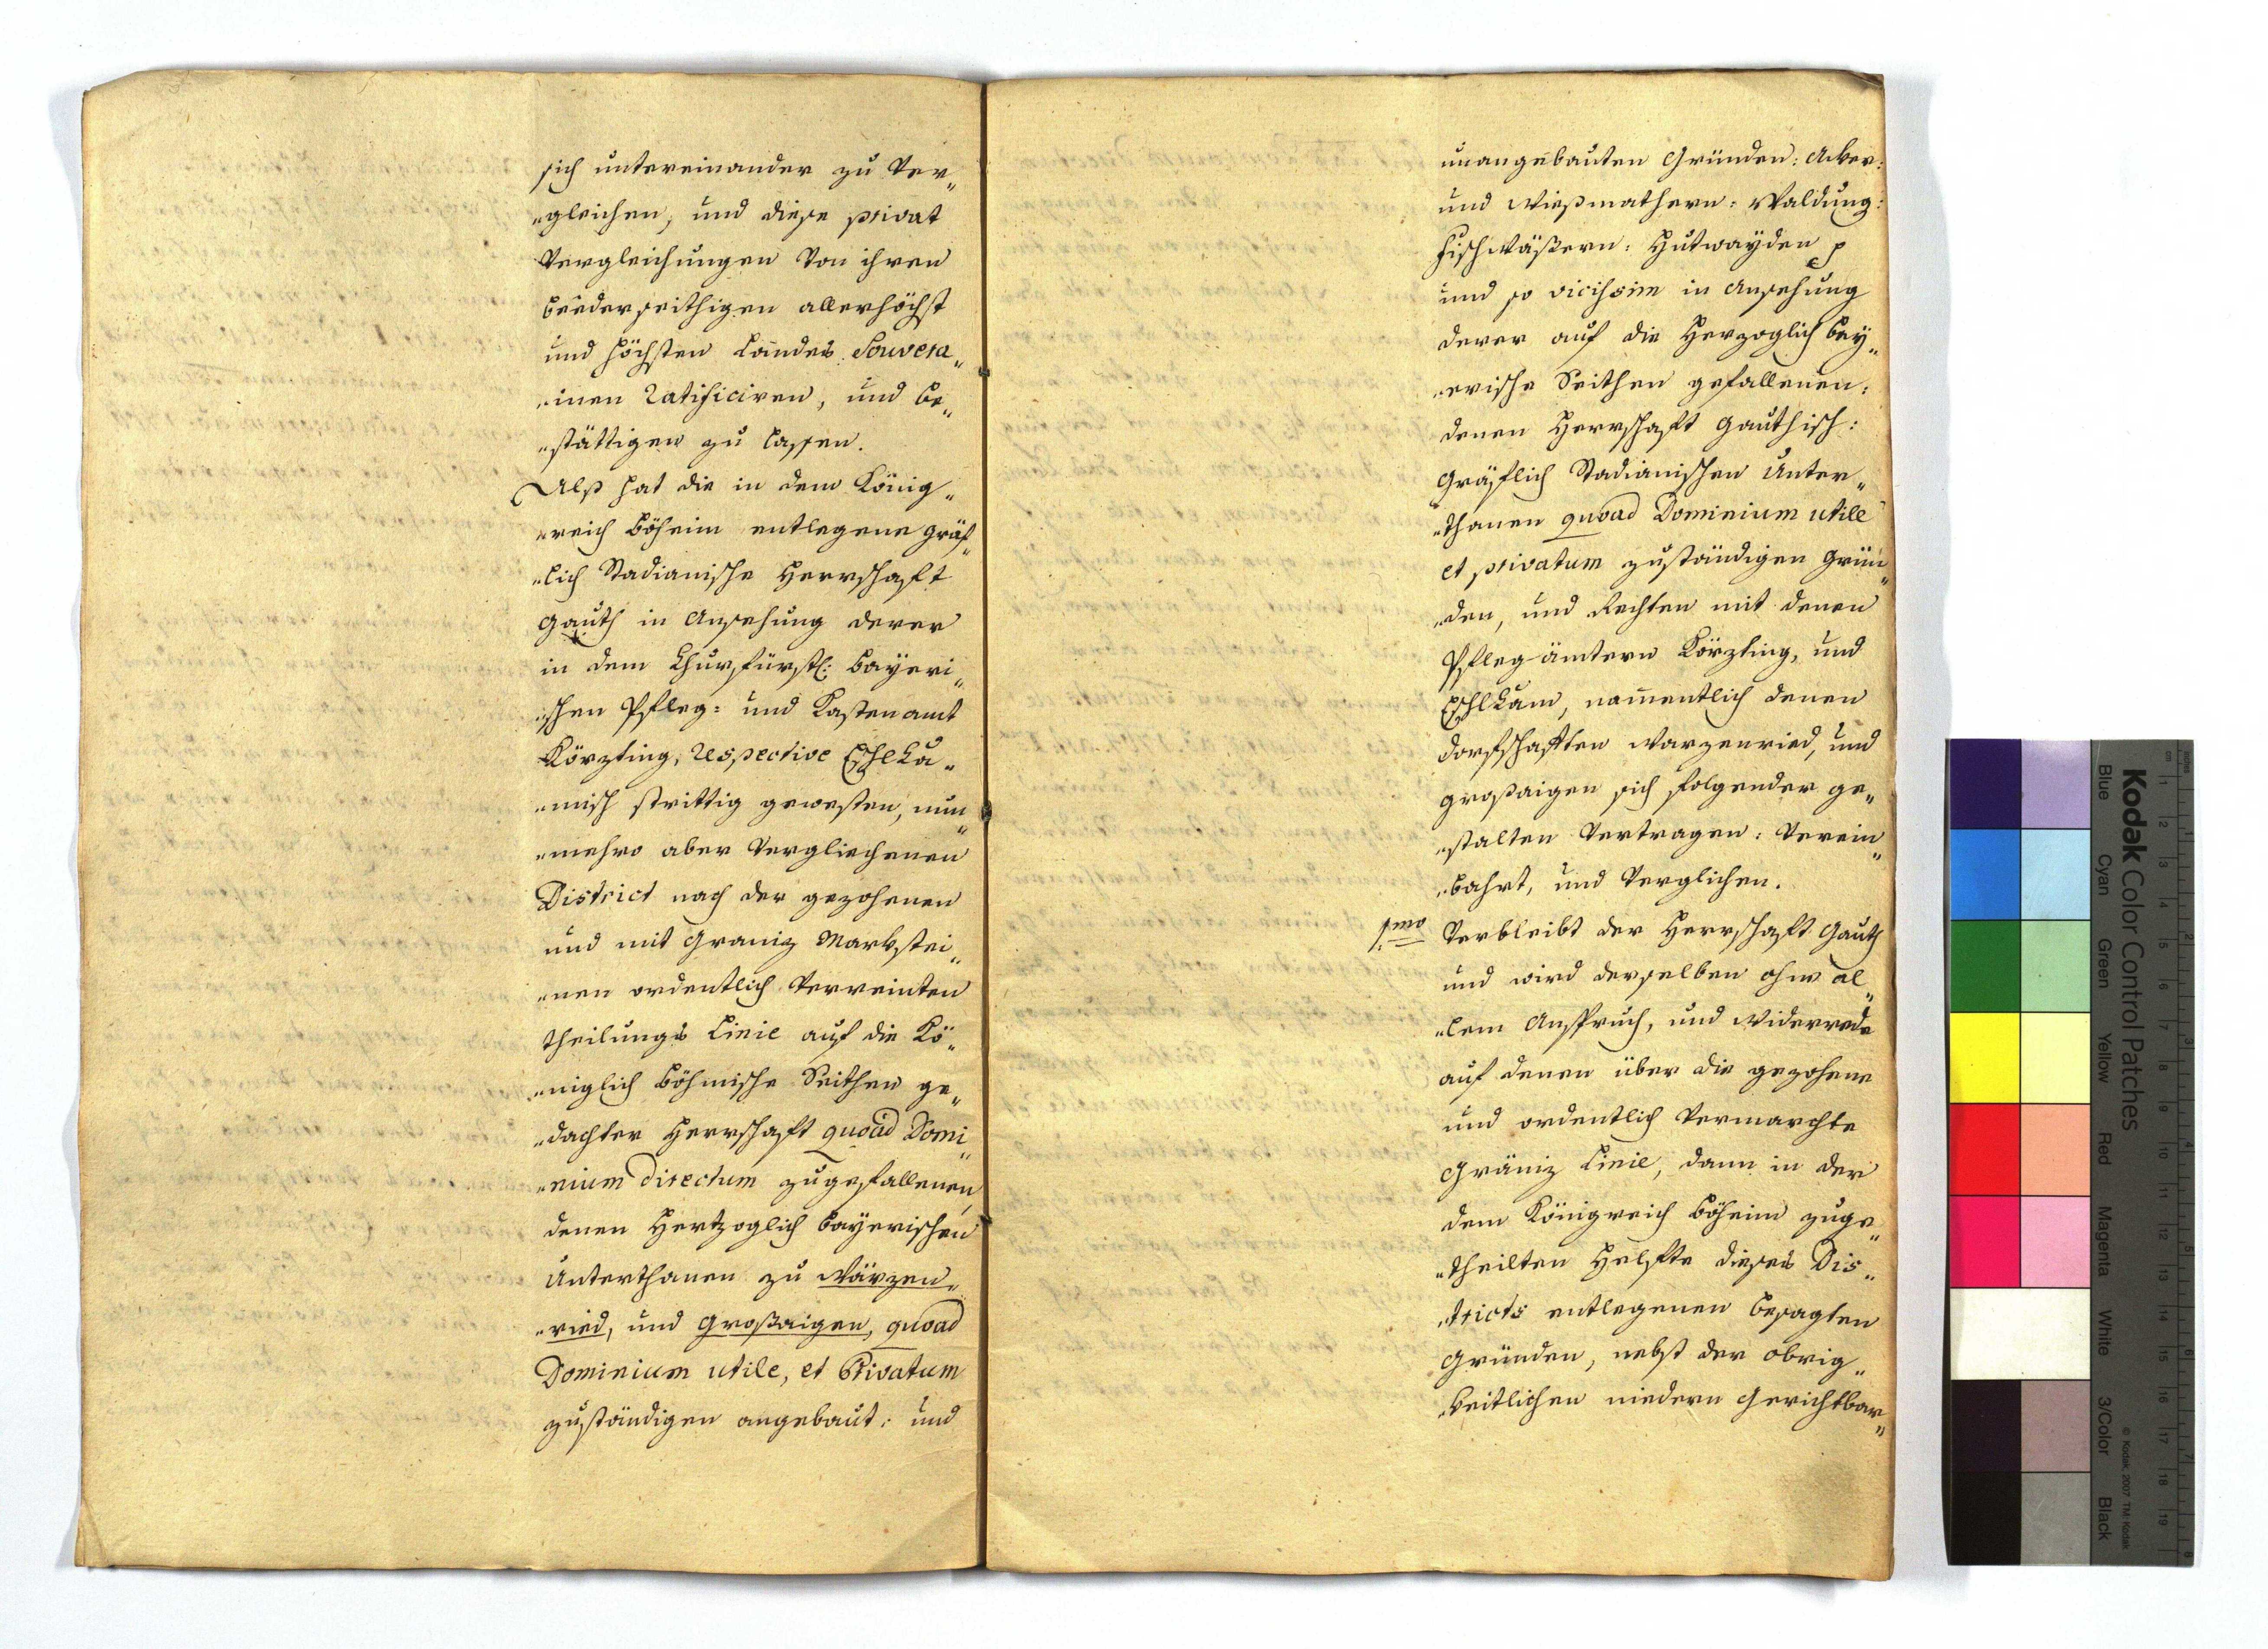 sich untereinander zu Ver„
„gleichen, und diese privat
Vergleichungen Von ihren
beederseithigen allerhöchst
und höchsten Landes Souvera„
„inen Ratificiren, und be„
„stättigen zu lassen.
Alß hat die in dem König„
„reich Böheim entlegene Gräf„
„lich Stadianische Herrschaft
Gauth in Ansehung derer
in dem Churfürstl: Bayeri„
„schen Pfleg: und Kastenamt
Közting, respective Eschlka„
„misch strittig gewesten, nun„
„mehro aber Vergliechenen
District nach der gezohenen
und mit Graniz Markstei„
„nen ordentlich Verreinten
theilungs Linie auf die Kö„
„niglich Böhmische Seithen ge„
„dachter Herrschaft quoad Domi„
„nium Directum zugefallenen,
denen Hertzoglich Bayerischen
Unterthanen zu Warzen„
„ried, und Großaigen, quoad
Dominium utile, et Privatum
zuständigen angebaut: und
unangebauten Gründen: Acker:
und Wießmathern: Waldung:
Fischwäßern: Hutwayden p
und so vicissim in Ansehung
derer auf die Herzoglich bay„
„erische Seithen gefallenen:
denen Herrschaft Gauthisch:
Gräflich Stadianischen Unter„
„thanen quoad Dominium utile
et privatum zuständigen Grün„
„den, und Rechten mit denen
Pflegämtern Közting, und
Eschlkam, namentlich denen
Dorfschafften Warzenried, und
Großaigen sich folgender ge„
„stalten Vertragen: Verein„
„bahrt, und Verglichen.
1mo Verbleibt der Herrschaft Gauth
und wird derselben ohne al„
„lem Anspruch, und Widerrede
auf denen über die gezohene
und ordentlich Vermarchte
Gräniz Linie, dann in der
dem Königreich Böheim zuge„
„theilten Helfte dieses Dis„
„tricts entlegenen besagten
Gründen, nebst der obrig„
„keitlichen niedern Gerichtbar„
Kodak Color Control Patches
Blue
Cyan
Green
Yellow
Red
Magenta
White
3/Color
Black
© Kodak, 2007 TM: Kodak